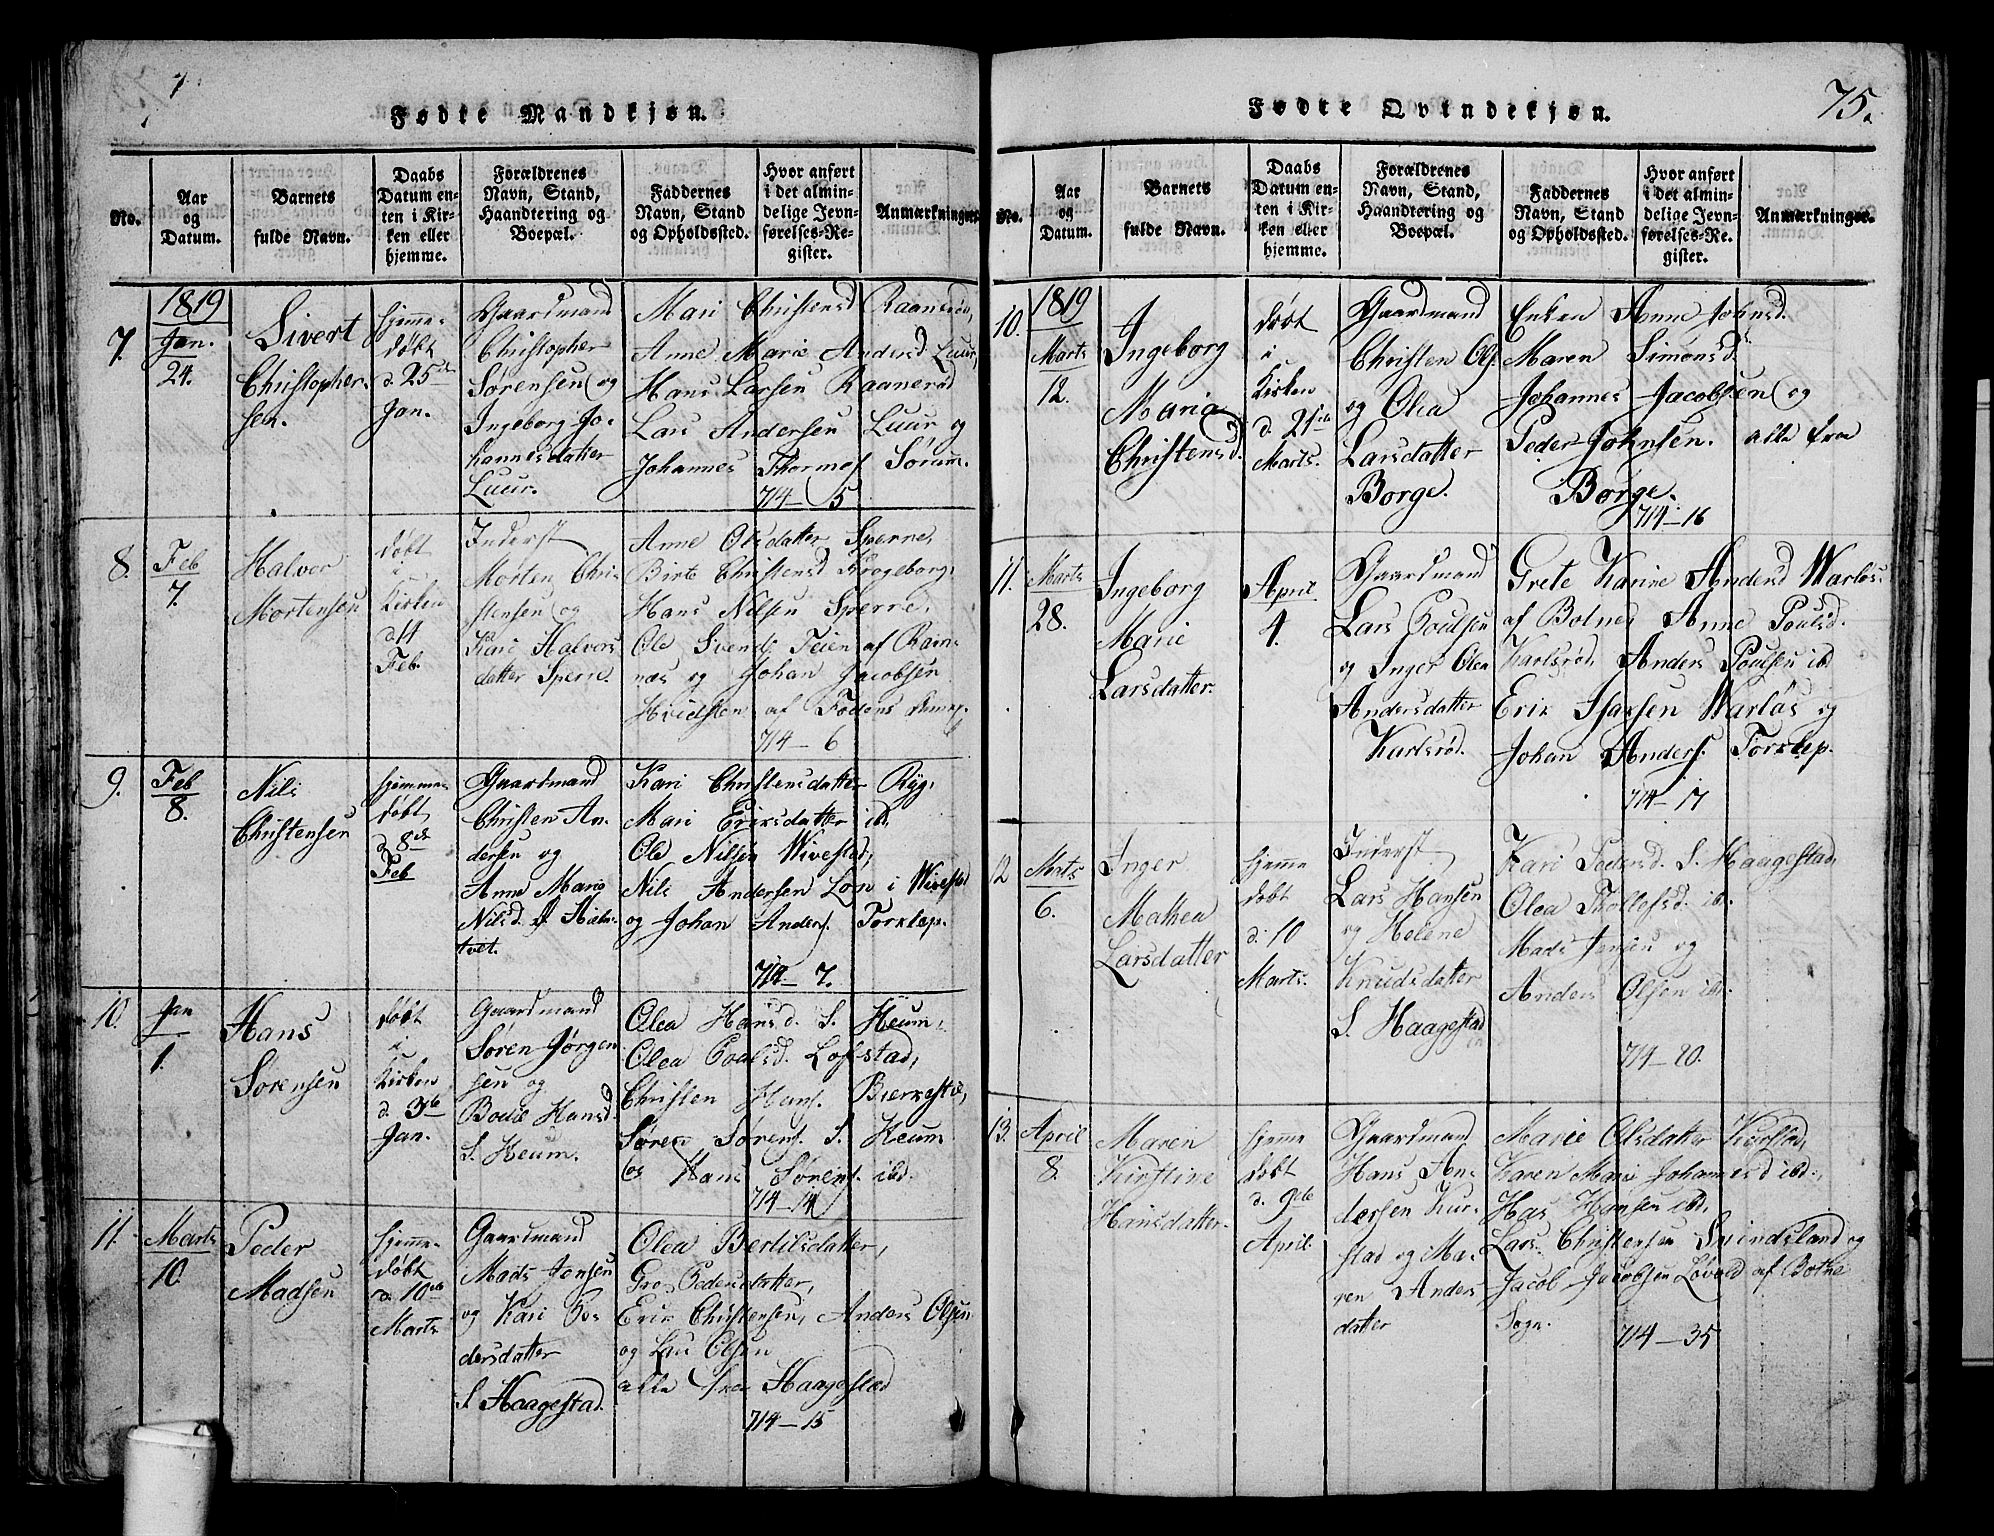 Fødte Mandkjøn.
No.
Aar og Datum.
Barnets fulde Navn.
Daabs Datum enten i Kirken eller hjemme.
Forældrenes Navn, Stand, Haandtering og Boepæl.
Faddernes Navn, Stand og Opholdssted.
Hvor anført i det almindelige Jevnførelses-Register.
Anmærkninger.
7.
1819
Jan.
24.
Sivert
Christopher-
sen.
hjemme-
døbt
d. 25de
Jan.
Gaardmand
Christopher
Sørensen og
Ingeborg Jo-
hannesdatter
Luur.
Mari Christensd Raanerød,
Anne Marie Andersd Luur,
Hans Larsen Raanerød
Lars Andersen Luur og
Johannes Thormof. Sørum.
714-5
8.
Feb
7.
Halvor
Mortensen
døbt
i
Kirken
d 14
Feb.
Inderst
Morten Chri-
stensen og
Kari Halvors
datter Sperre.
Anne Olsdatter Sperre,
Birte Christensd Krogeborg,
Hans Nilsen Sperre,
Ole Svendj Feien af Ram-
næs og Johan Jacobsen
Hvidsten af Fodens
714-6
9.
Feb
8.
Nils
Christensen
hjemme-
døbt
d 8de
Feb
Gaardmand
Christen An-
dersen og
Anne Marie
Nilsd.
tvet.
Kari Christensdatter Ryg,
Mari Eriksdatter ib,
Ole Nilsen Wivestad,
Nils Andersen Løn i Wivestad
og Johan Anders. Torklep.
714-7.
10.
Jan
1.
Hans
Sørensen
døbt
i
Kirken
d. 3die
Jan.
Gaardmand
Søren Jørgen
sen og
Bodil Hansd.
S. Heum.
Olea Hansd. S. Heum,
Olea Poulsd. Lofstad,
Christen Hans. Bierkestad,
Søren Sørens. S. Heum
og Hans Sørens. ibd.
714-14
11.
Marts
10.
Peder
Madsen
hjemme-
døbt
d 10de
Marts
Gaardmand
Mads Jensen
og Kari Pe-
dersdatter
S. Haagestad.
Olea Bertilsdatter,
Gro Pedersdatter,
Erik Christensen, Anders Olsen
og Lars Olsen
alle fra Haagestad
714-15
Fødte Qvindekjøn.
75.
No.
Aar og Datum.
Barnets fulde Navn.
Daabs Datum enten i Kirken eller hjemme.
Forældrenes Navn, Stand, Haandtering og Boepæl.
Faddernes Navn, Stand og Opholdsted.
Hvor anført i det almindelige Jevnførelses-Register.
Anmærkninger.
10.
1819
Marts
12.
Ingeborg
Maria
Christensd.
døbt
i
Kirken
d. 21de
Marts.
Gaardmand
Christen Ols.
og Olea
Larsdatter
Borge.
Enken Anne Johnsd.
Maren Simonsd.
Johannes Jacobsen og
Peder Johnsen. alle fra
Borge.
714-16
11.
Marts
28.
Ingeborg
Marie
Larsdatter.
April
4.
Gaardmand
Lars Poulsen
og Inger Olea
Andersdatter
Karlsrød.
Grete Karine Andersd Warløs.
af Botne, Anne Poulsd.
Karlsrød, Anders Poulsen ibd
Erik Isaksen Warløs og
Johan Anders. Torklep.
714-17
12
Marts
6.
Inger
Mathea
Larsdatter
hjemme
døbt
d. 10
Marts.
Inderst
Lars Hansen
og Helene
Knudsdatter
S. Haagestad
Kari Pedersd. S. Haagestad,
Olea Thollefsd. ib.
Mads Jensen og
Anders Olsen ibd.
714-20.
13.
April
8.
Maren
Kirstine
Hansdatter.
hjemme
døbt
d. 9de
April.
Gaardmand
Hans An-
dersen Kur-
stad og Ma-
ren Anders
datter
Marie Olsdatter Kurstad,
Karen Marie Johannesd ibd.,
Has Hansen ibd,
Lars Christensen Svindsland og
Jacob Jacobsen Løvold af Botne
Sogn.
714-35